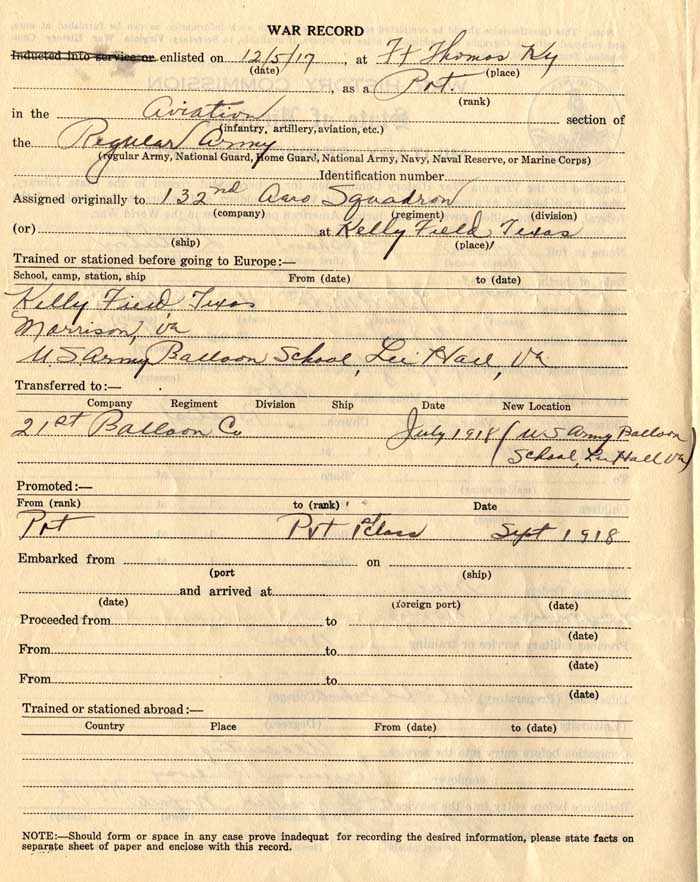 WAR RECORD
Inducted into service or enlisted on 12/5/17, at Ft Thomas Ky
(date) (place)
, as a Pvt.
(rank)
in the Aviation section of
(infantry, artillery, aviation, etc.)
the Regular Army
(regular Army, National Guard, Home Guard, National Army, Navy, Naval Reserve, or Marine Corps)
Identification number
Assigned originally to 132nd Aero Squadron
(company) (regiment) (division)
(or) at Kelly Field Texas
(ship) (place)
Trained or stationed before going to Europe:—
School, camp, station, ship From (date) to (date)
Kelly Field Texas
Morrison, Va
U.S. Army Balloon School, Lee Hall, Va
Transferred to:—
Company Regiment Division Ship Date New Location
21st Balloon Co July 1918 (U.S Army Balloon
School, Lee Hall Va)
Promoted:—
From (rank) to (rank) Date
Pvt Pvt 1st Class Sept 1918
Embarked from on
(port (ship)
and arrived at
(date) (foreign port) (date)
Proceeded from to
(date)
From to
(date)
From to
(date)
Trained or stationed abroad:—
Country Place From (date) to (date)
NOTE:—Should form or space in any case prove inadequat for recording the desired information, please state facts on
separate sheet of paper and enclose with this record.